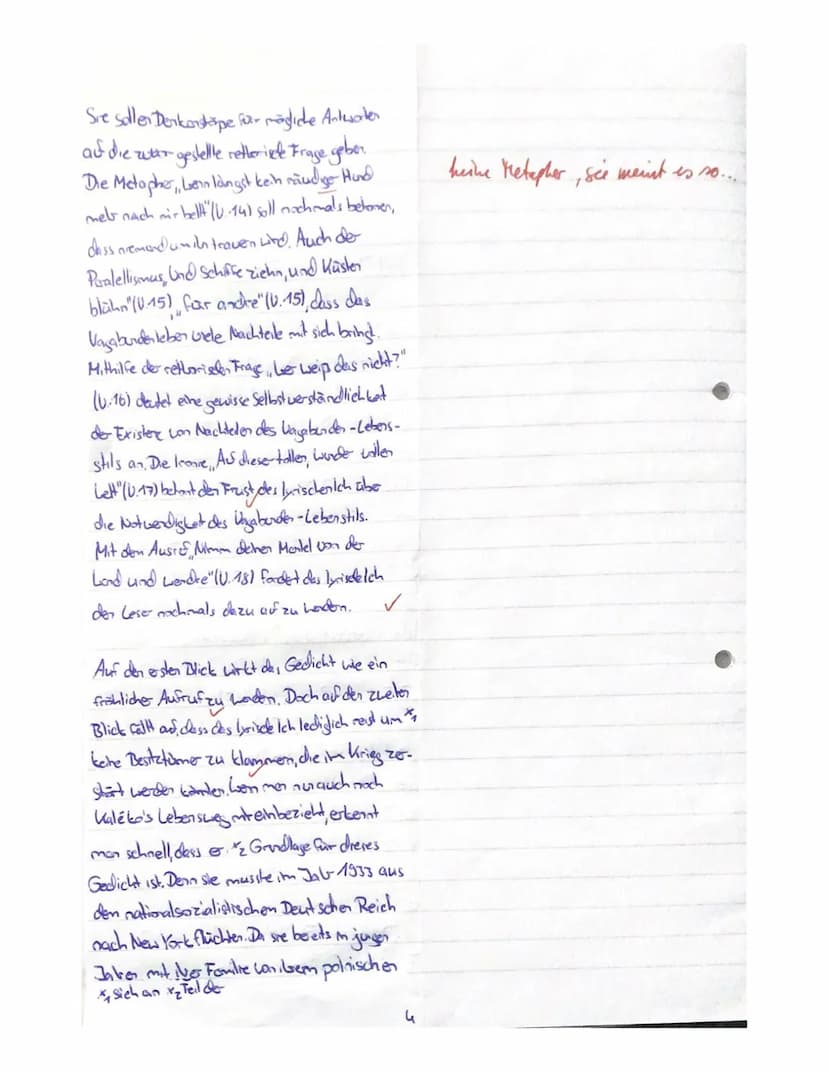 Sie sollen Denkanstöße für mögliche Antworten
auf die zuvor gestellte rethorische Frage geben.
Die Metapher „wenn längst kein räudiger Hund
mehr nach mir bellt" (V.14) soll nochmals betonen,
dass niemand um ihn trauern wird. Auch der
Paralellismus „Und Schiffe ziehn, und Küsten
blühn" (V.15) „für andre" (V.15), dass das
Vagabundenleben viele Nachteile mit sich bringt.
Mithilfe der rethorischen Frage „Wer weiß das nicht?"
(V.16) deutet eine gewisse Selbstverständlichkeit
der Existenz von Nachteilen des Vagabunden-Lebens-
stils an. Die Ironie „Auf dieser tollen, wunder vollen
Welt" (V.17) betont den Frust des lyrischen Ich über
die Notwendigkeit des Vagabunden-Lebenstils.
Mit dem Ausruf „Nimm deinen Mantel von der
Wand und wandre" (V.18) fordert das lyrische Ich
den Leser nochmals dazu auf zu wandern.
Auf den ersten Blick wirkt das Gedicht wie ein
fröhlicher Aufruf zu wandern. Doch auf den zweiten
Blick fällt auf, dass das lyrische Ich lediglich reist um *1
keine Besitztümer zu klammern, die im Krieg zer-
stört werden könnten. Wenn man nun auch noch
Kaléko's Lebensweg miteinbezieht, erkennt
man schnell, dass er *2 Grundlage für dieses
Gedicht ist. Denn sie musste im Jahr 1933 aus
dem nationalsozialistischen Deutschen Reich
nach New York flüchten. Da sie bereits in jungen
Jahren mit ihrer Familie von ihrem polnischen
*1 sich an *2 Teil der
4
keine Metapher, sie meint es so...